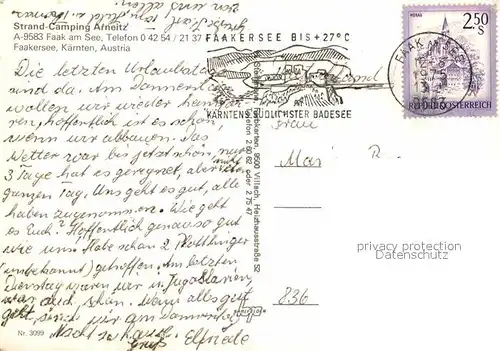 Strand-Camping Arneitz
A-9583 Faak am See, Telefon 0 42 54 / 21 37
Faakersee, Kärnten, Austria
FAAKERSEE BIS +27°C
KÄRNTENS SÜDLICHSTER BADESEE
MURAU
2.50
S
REPUBLIK ÖSTERREICH
FAAK AM SEE
Die letzten Urlaubstage
sind da. Am Donnerstag
wollen wir wieder heimfah
ren, hoffentlich ist es schön,
wenn wir abbauen. Das
Wetter war bis jetzt schön, nur
3 Tage hat es geregnet, aber den
ganzen Tag. Uns geht es gut, alle
haben zugenommen. Wie geht
es Euch? Hoffentlich genauso gut
wie uns. Habe schon 2
(unbekannt) getroffen. Am letzten
Dienstag waren wir in Jugoslavien,
war auch schön. Wenn alles gut
geht, sind wir am Donnerstag
Nacht zu hause.
Gruß Elfriede
Frau
Mari R.
836
9500 Villach, Heizhausstraße 52
Telefon 2 60 62 oder 2 75 47
Nr. 3099
privacy protection
Datenschutz